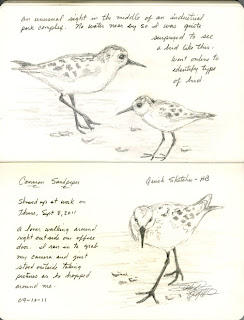 an unusual sight in the middle of an industrial
park complex. No water near by so it was quite
surprised to see
a bird like this.
Went online to
identify type
of bird
Common Sandpiper
Quick Sketches - HB
Showed up at work on
Thurs, Sept 8, 2011
A loner walking around
right outside our office
door. I ran in to grab
my camera and just
stood outside taking
pictures as he hopped
around me.
09-10-11